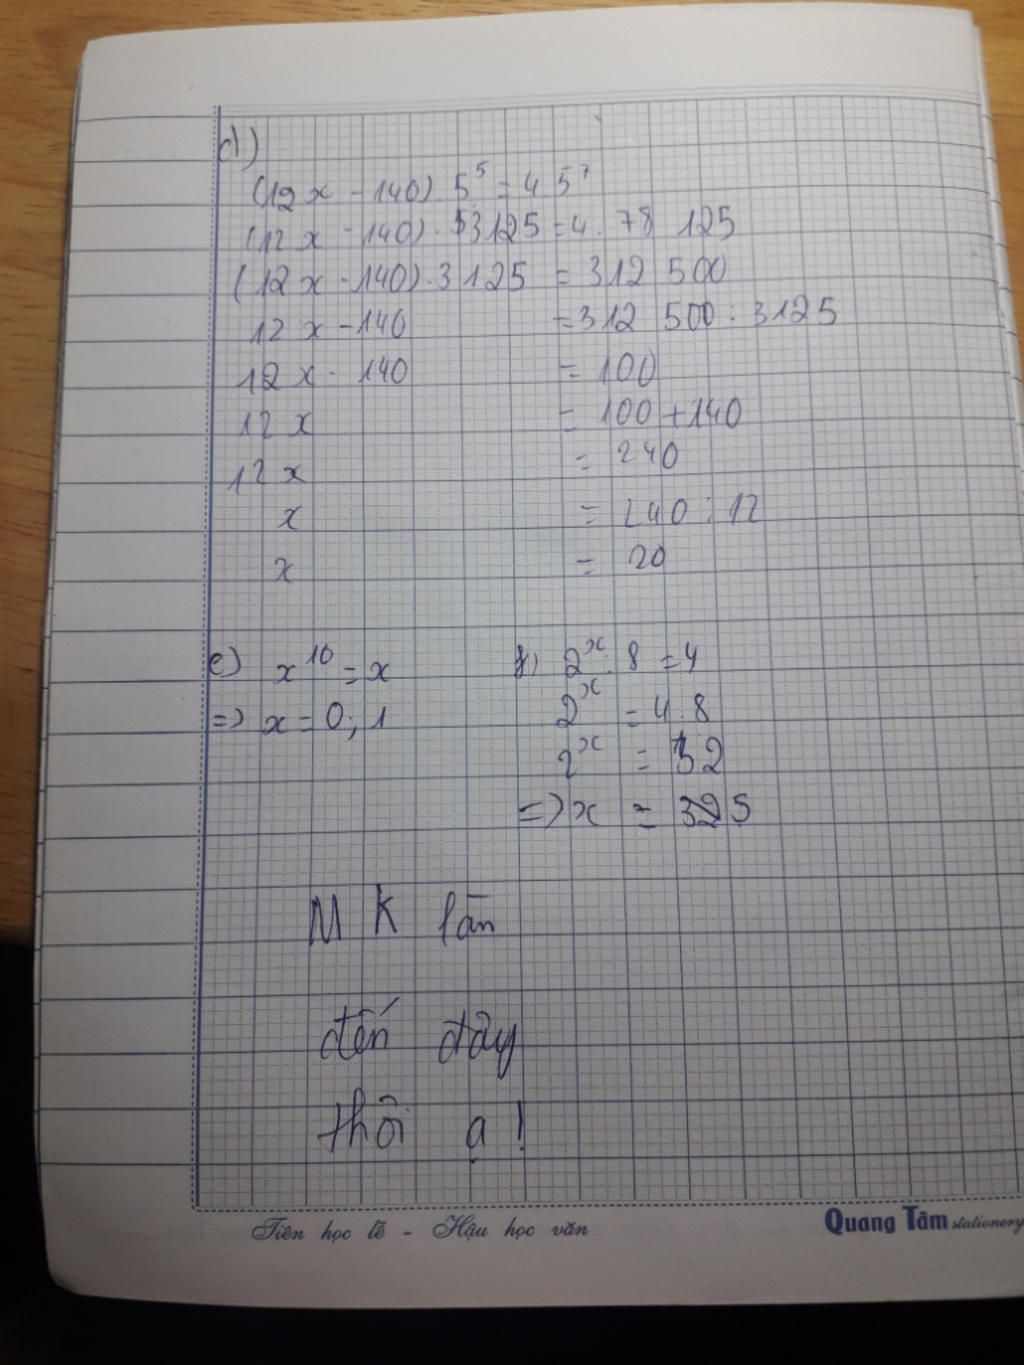 d)
(12x - 140). 5⁵ = 4.5⁷
(12x - 140). 3125 = 4. 78 125
(12x - 140). 3125 = 312 500
12x - 140 = 312 500 : 3125
12x - 140 = 100
12x = 100 + 140
12x = 240
x = 240 : 12
x = 20
e) x¹⁰ = x
=> x = 0; 1
2ˣ : 8 = 4
2ˣ = 4.8
2ˣ = 32
=> x = 5
MK làn
đến đây
thôi ạ!
Tiên học lễ - Hậu học văn
Quang Tâm stationery